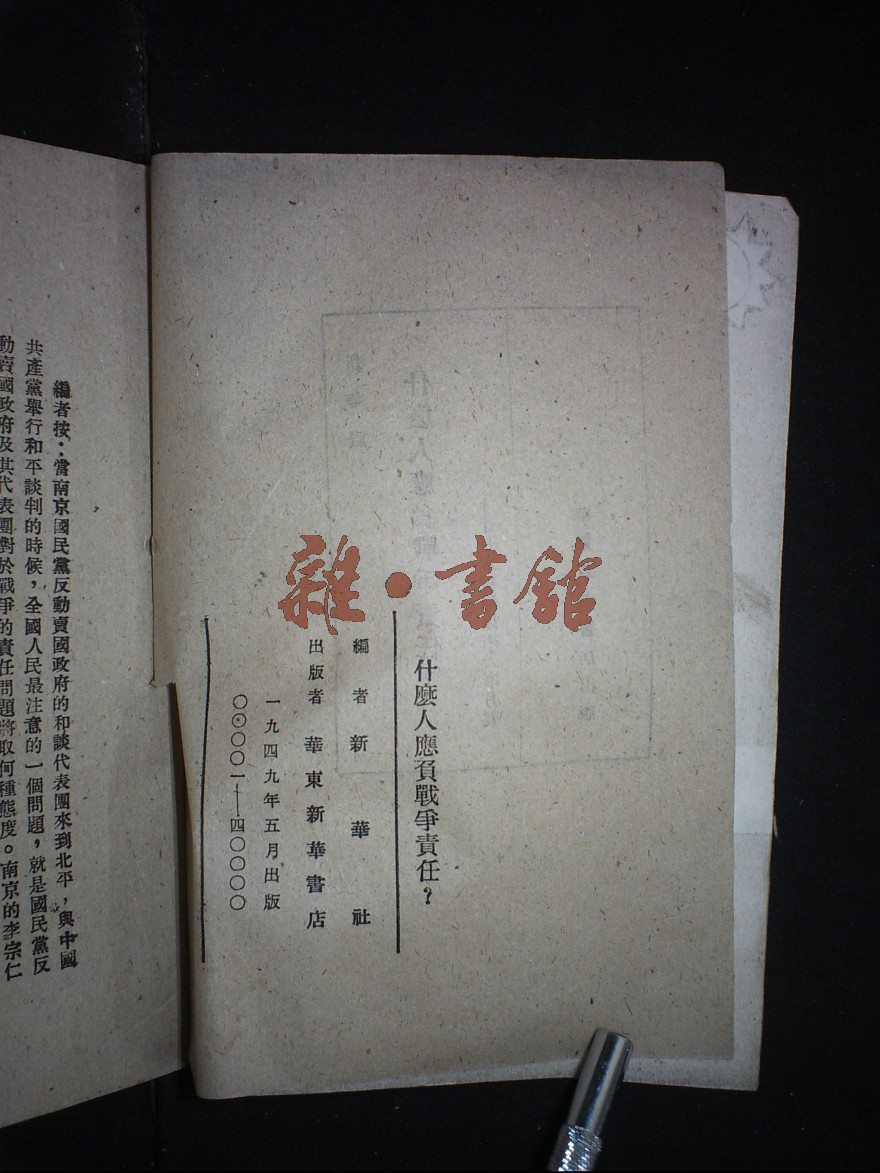 什麽人應負戰爭責任？
編者新華社
出版者華東新華書店
一九四九年五月出版
〇〇〇〇一—四〇〇〇〇
編者按：當南京國民黨反動賣國政府的和談代表團來到北平，與中國
共產黨舉行和平談判的時候，全國人民最注意的一個問題，就是國民黨反
動賣國政府及其代表團對於戰爭的責任問題將取何種態度。南京的李宗仁
雜·書館